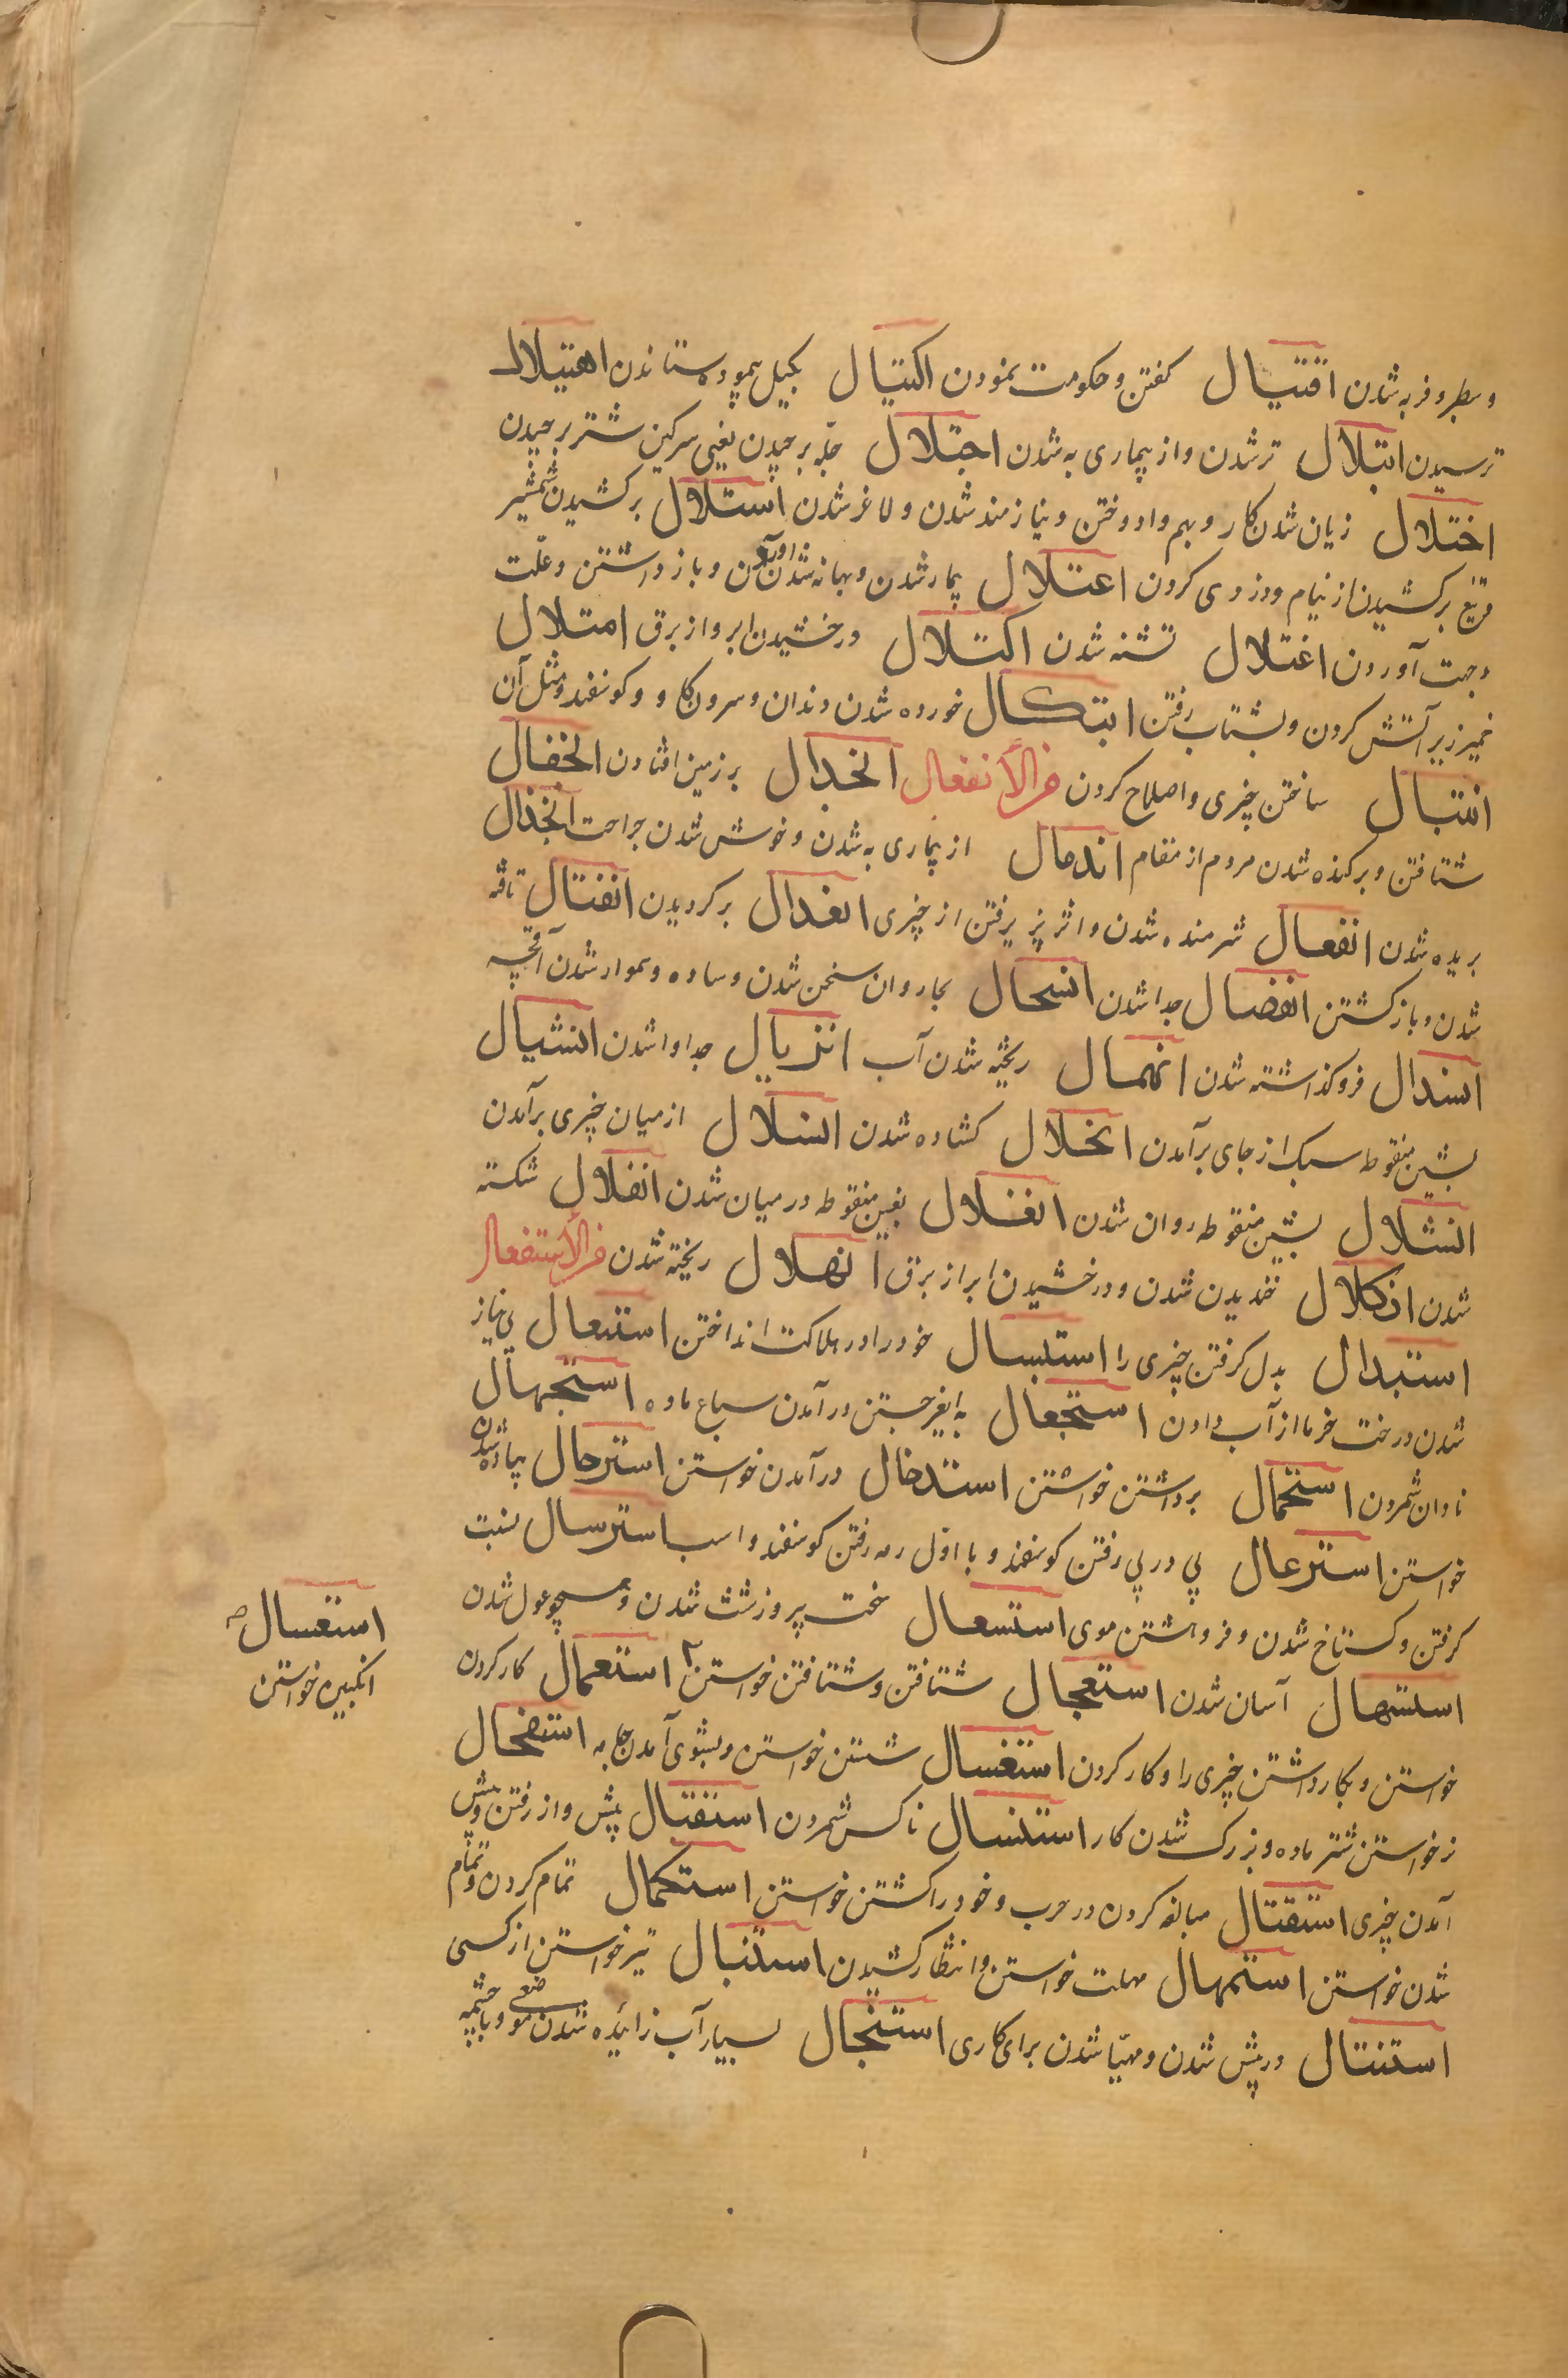 وسطبر و فربه شدن اقتیال کفتن و حکومت نمودن اکتیال بکیل پیموده ستاندن اهتیلال
ترسیدن ابتلال تر شدن و از بیماری به شدن اجتلال جله برچیدن یعنی سرکین شتر برچیدن
اختلال زیان شدن کار و بهم وادوختن و نیازمند شدن و لاغر شدن استلال برکشیدن شمشیر
برکشیدن از نیام و دزدی کردن اعتلال بیمار شدن و بهانه آوردن و باز داشتن و علت
وجهت آوردن اغتلال تشنه شدن اکتلال درخشیدن ابر و از برق امتلال
خمیر زیر آتش کردن و بشتاب رفتن ابتکال خورده شدن دندان و سرون کاو و کوسفند و مثل آن
انتبال ساختن چیزی و اصلاح کردن من الانفعال انجدال بر زمین افتادن انجفال
شتافتن و برکنده شدن مردم از مقام اندمال از بیماری به شدن و خوش شدن جراحت انخذال
بریده شدن انفعال شرمنده شدن و اثر پذیرفتن از چیزی انعدال برکردیدن انفتال تافته
شدن و باز کشتن انفصال جدا شدن انسحال بجا روان سخن شدن و ساده و هموار شدن آنچه
انسدال فروکذاشته شدن انهمال ریخته شدن آب انزیال جدا وا شدن انشیال
بشین منقوطه سبک از جای برآمدن انحلال کشاده شدن انسلال از میان چیزی برآمدن
انشلال بشین منقوطه روان شدن انغلال بغین منقوطه در میان شدن انفلال شکسته
شدن انکلال خندیدن شدن و درخشیدن ابر از برق انهلال ریخته شدن من الاستفعال
استبدال بدل کرفتن چیزی را استبسال خود را در هلاکت انداختن استبعال بی نیاز
شدن درخت خرما از آب دادن استجعال به ایغر جستن درآمدن سباع ماده استجهال
نادان شمردن استحمال برداشتن خواستن استدخال درآمدن خواستن استرجال پیاده شدن
خواستن استرعال پی در پی رفتن کوسفند و با اول رمه رفتن کوسفند و اسب استرسال نسبت
کرفتن و کستاخ شدن و فروهشتن موی استسعال سخت پیر و زشت شدن و همچو غول شدن
استسهال آسان شدن استعجال شتافتن و شتافتن خواستن استعمال کار کردن
خواستن و بکار داشتن چیزی را و کار کردن استغسال شستن خواستن و بشوی آمدن جامه استفحال
نر خواستن شتر ماده و بزرک شدن کار استفسال ناکس شمردن استقبال پیش واز رفتن و پیش
آمدن چیزی استقتال مبالغه کردن در حرب و خود را کشتن خواستن استکمال تمام کردن و تمام
شدن خواستن استمهال مهلت خواستن و انتظار کشیدن استنبال تیر خواستن از کسی
استنتال در پیش شدن و مهیا شدن برای کاری استنجال بسیار آب زائیده شدن موضعی و با چشمه
استعسال صح
انکبین خواستن